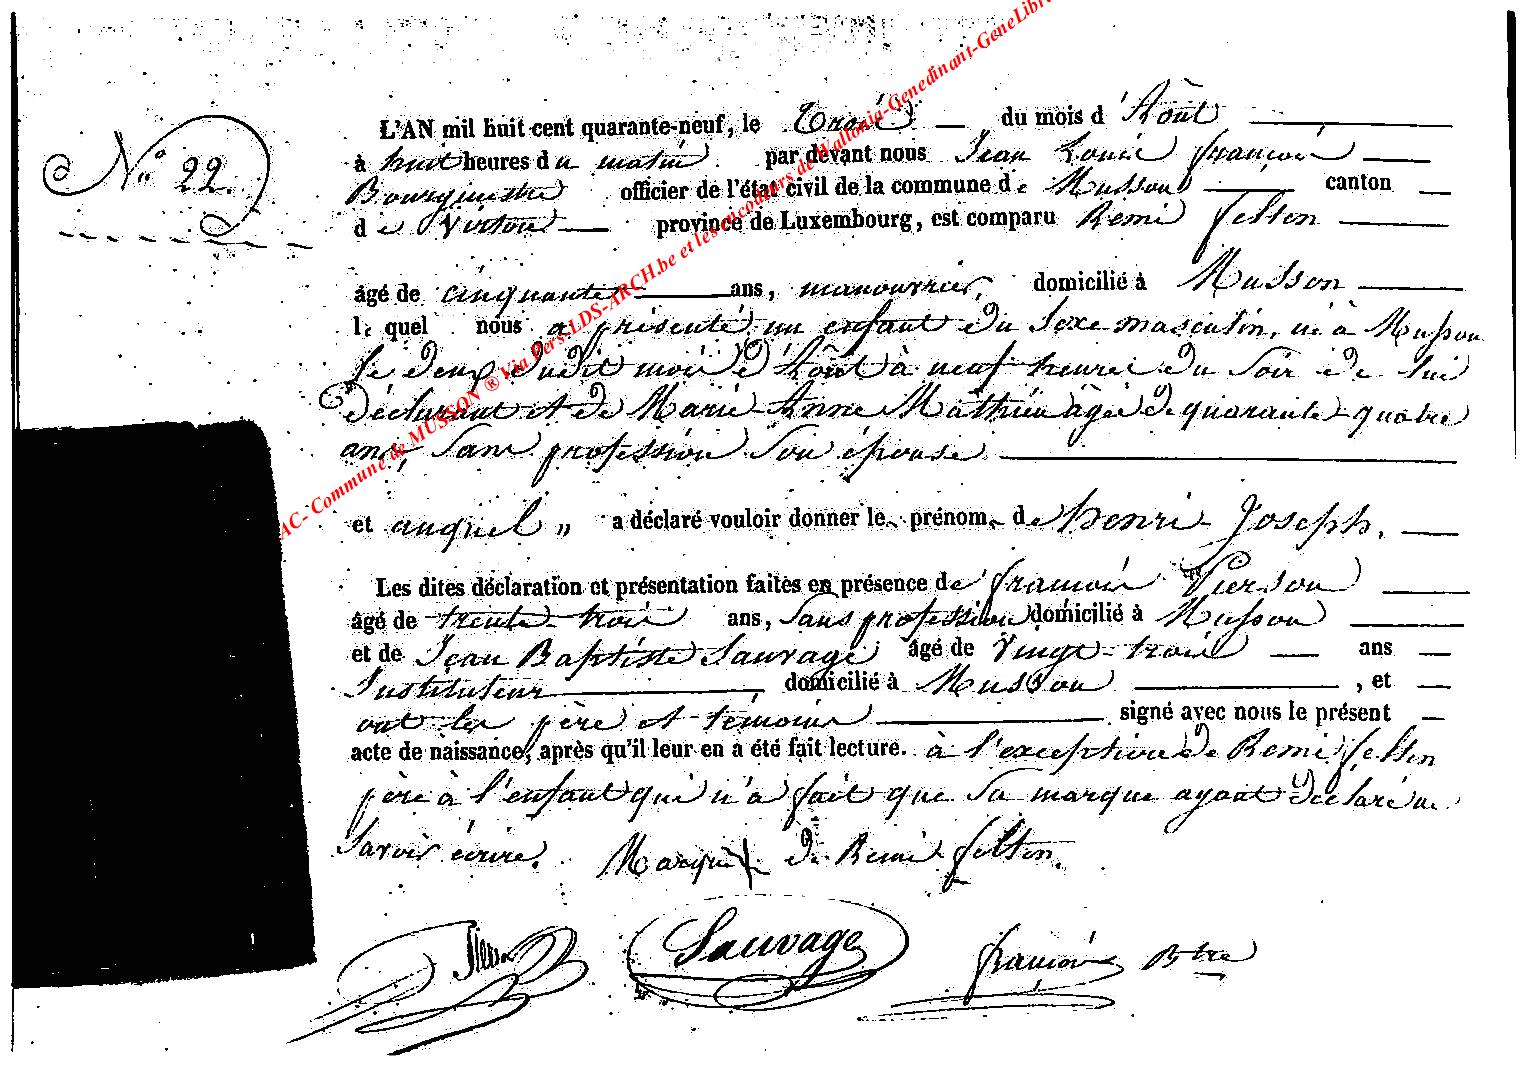 N° 22.
L'AN mil huit cent quarante-neuf, le Trois du mois d' Août
à huit heures du matin par devant nous Jean Louis françois
Bourgmestre officier de l'état civil de la commune de Musson canton
de Virton province de Luxembourg, est comparu Remi felten
âgé de cinquante ans, manouvrier, domicilié à Musson
lequel nous a présenté un enfant du sexe masculin, né à Musson
le deux dudit mois d'Août à neuf heures du soir de lui
déclarant et de Marie Anne Mathieu âgée de quarante-quatre
ans, sans profession son épouse
et auquel " a déclaré vouloir donner le prénom de henri Joseph.
Les dites déclaration et présentation faites en présence de françois Pierson
âgé de trente-trois ans, sans profession domicilié à Musson
et de Jean Baptiste Sauvage âgé de vingt-trois ans
Instituteur domicilié à Musson, et
ont les père et témoins signé avec nous le présent
acte de naissance, après qu'il leur en a été fait lecture. à l'exception de Remi felten
père à l'enfant qui n'a fait que sa marque ayant déclaré ne
savoir écrire. Marque de Remi felten.
Sauvage
françois Btre
AC- Commune de MUSSON ® Via Pers.LDS-ARCH.be et les encodeurs de Wallonia-Genedinant-GeneLibr